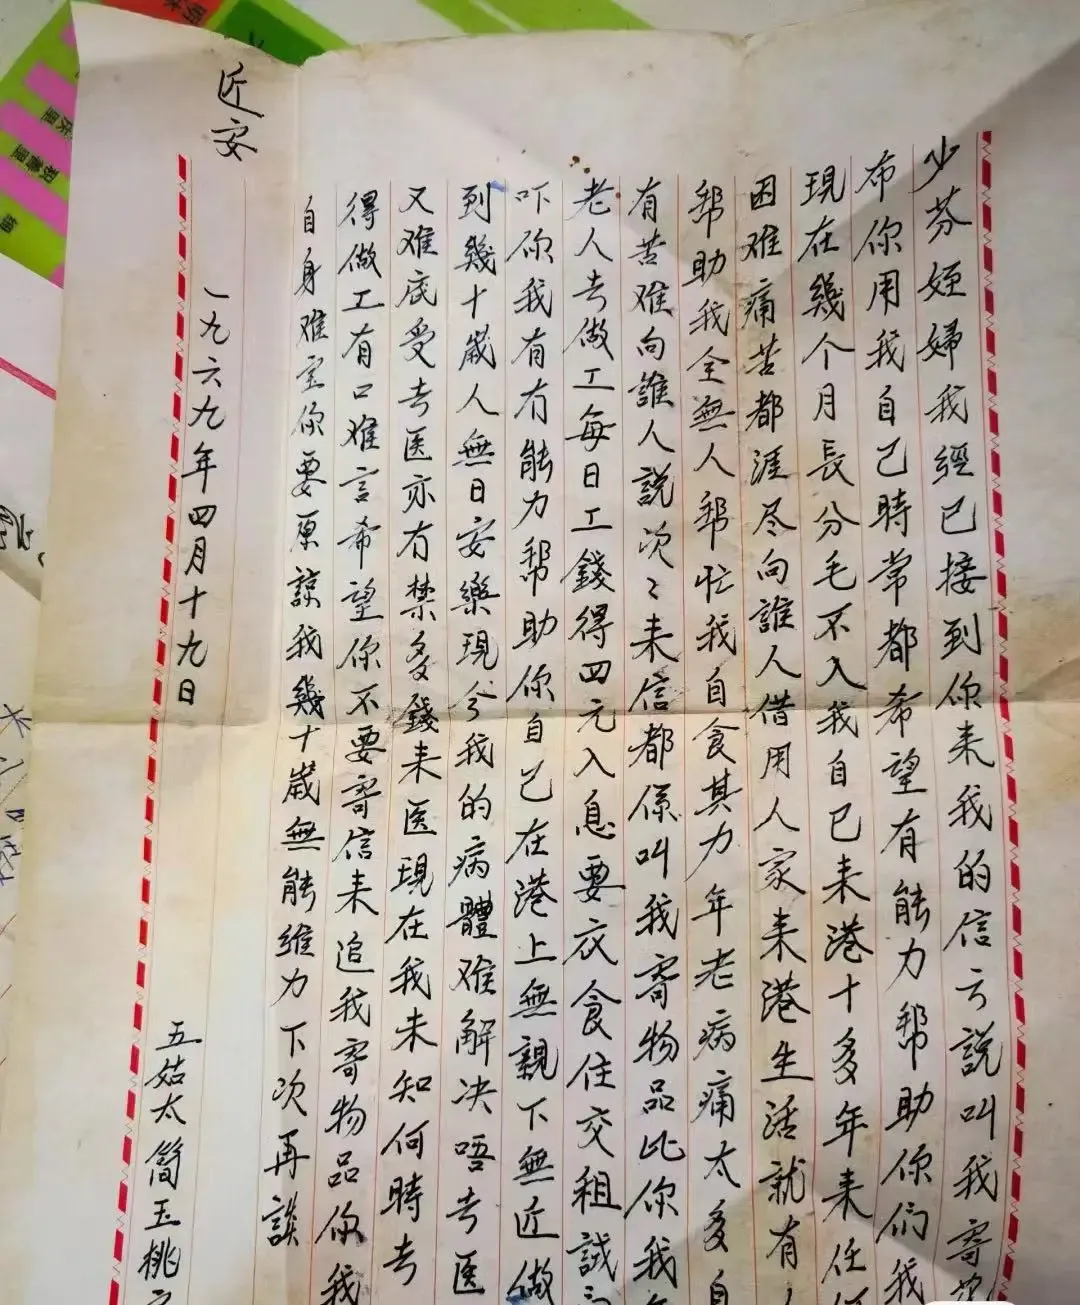 少芬姪婦我經已接到你来我的信云說叫我寄
布你用我自己時常都希望有能力帮助你们我
現在幾个月長分毛不入我自已来港十多年来任
困难痛苦都涯尽向誰人借用人家来港生活就有
帮助我全無人帮忙我自食其力年老病痛太多自
有苦难向誰人説次々来信都係叫我寄物品比你我
老人去做工每日工錢得四元入息要衣食住交租誠
吓你我有冇能力帮助你自己在港上無親下無近做
到幾十歲人無日安樂現今我的病體难解决唔去医
又难底受去医亦冇禁多錢来医現在我未知何時去
得做工有口难言希望你不要寄信来追我寄物品你我
自身难 你要原諒我幾十歲無能維力下次再談
近安
一九六九年四月十九日
五姑太簡玉桃